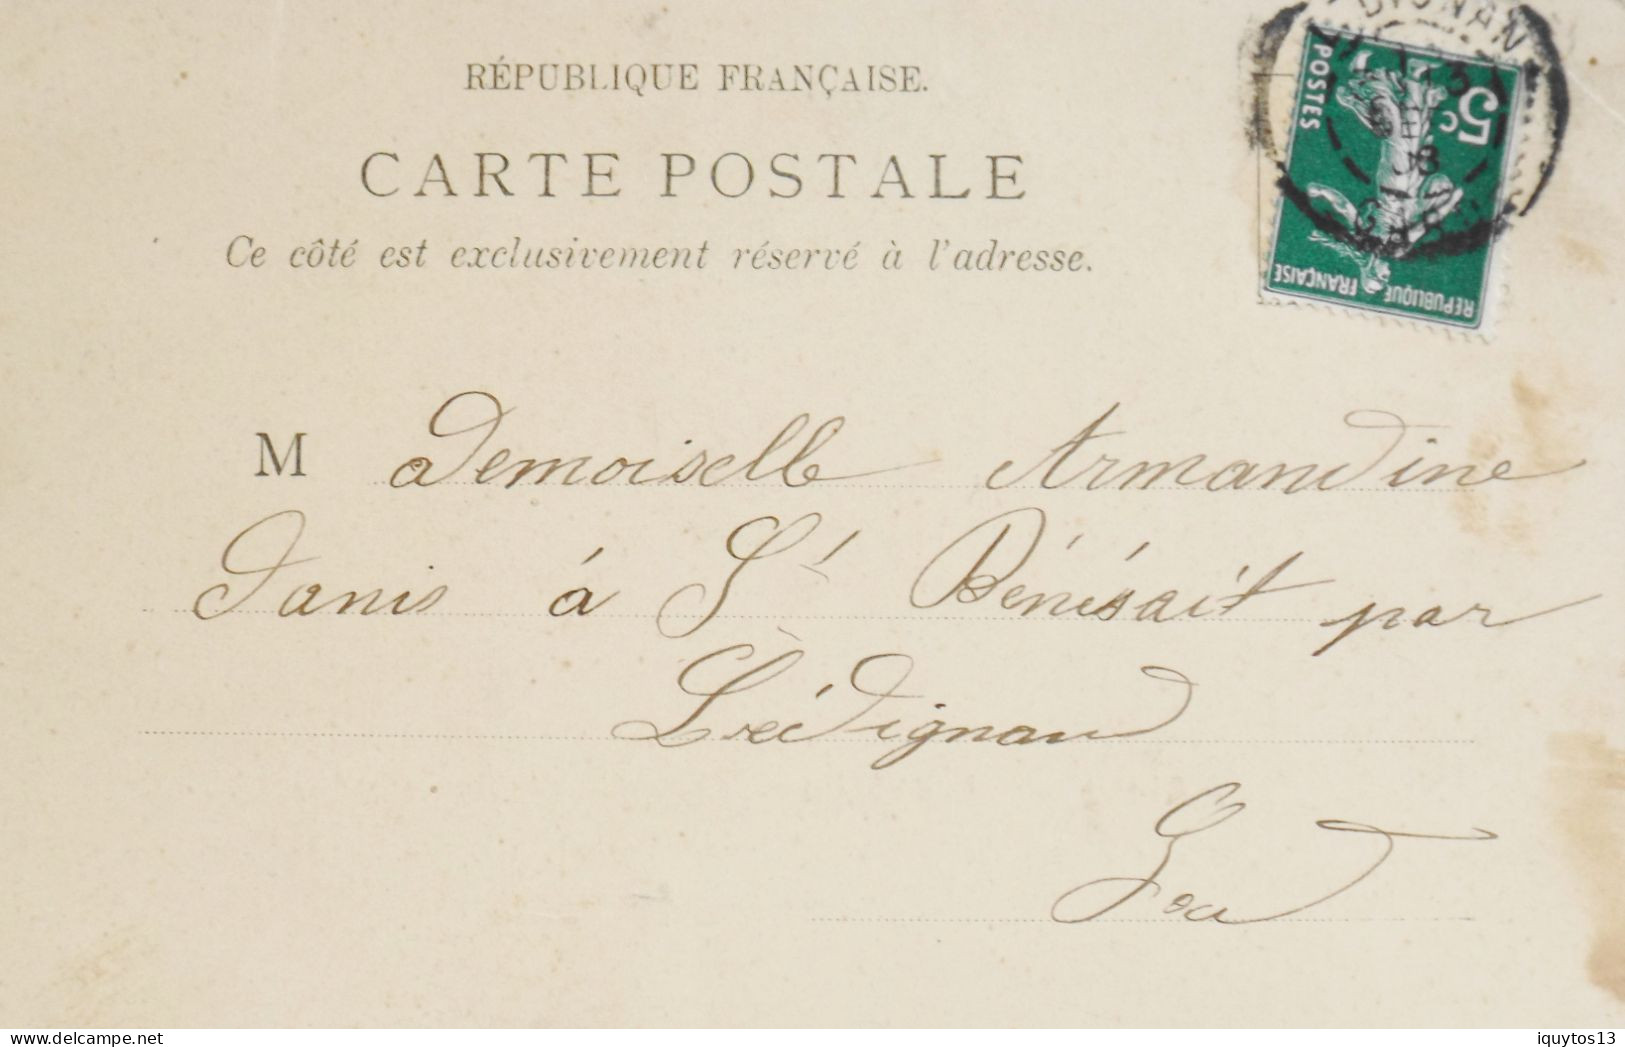 RÉPUBLIQUE FRANÇAISE.
CARTE POSTALE
Ce côté est exclusivement réservé à l'adresse.
5c
POSTES
RÉPUBLIQUE FRANÇAISE
DIGNAN
GARD
M ademoiselle Armandine
Danis à St Bénésait par
Lédignan
Gard
www.delcampe.net
iquytos13